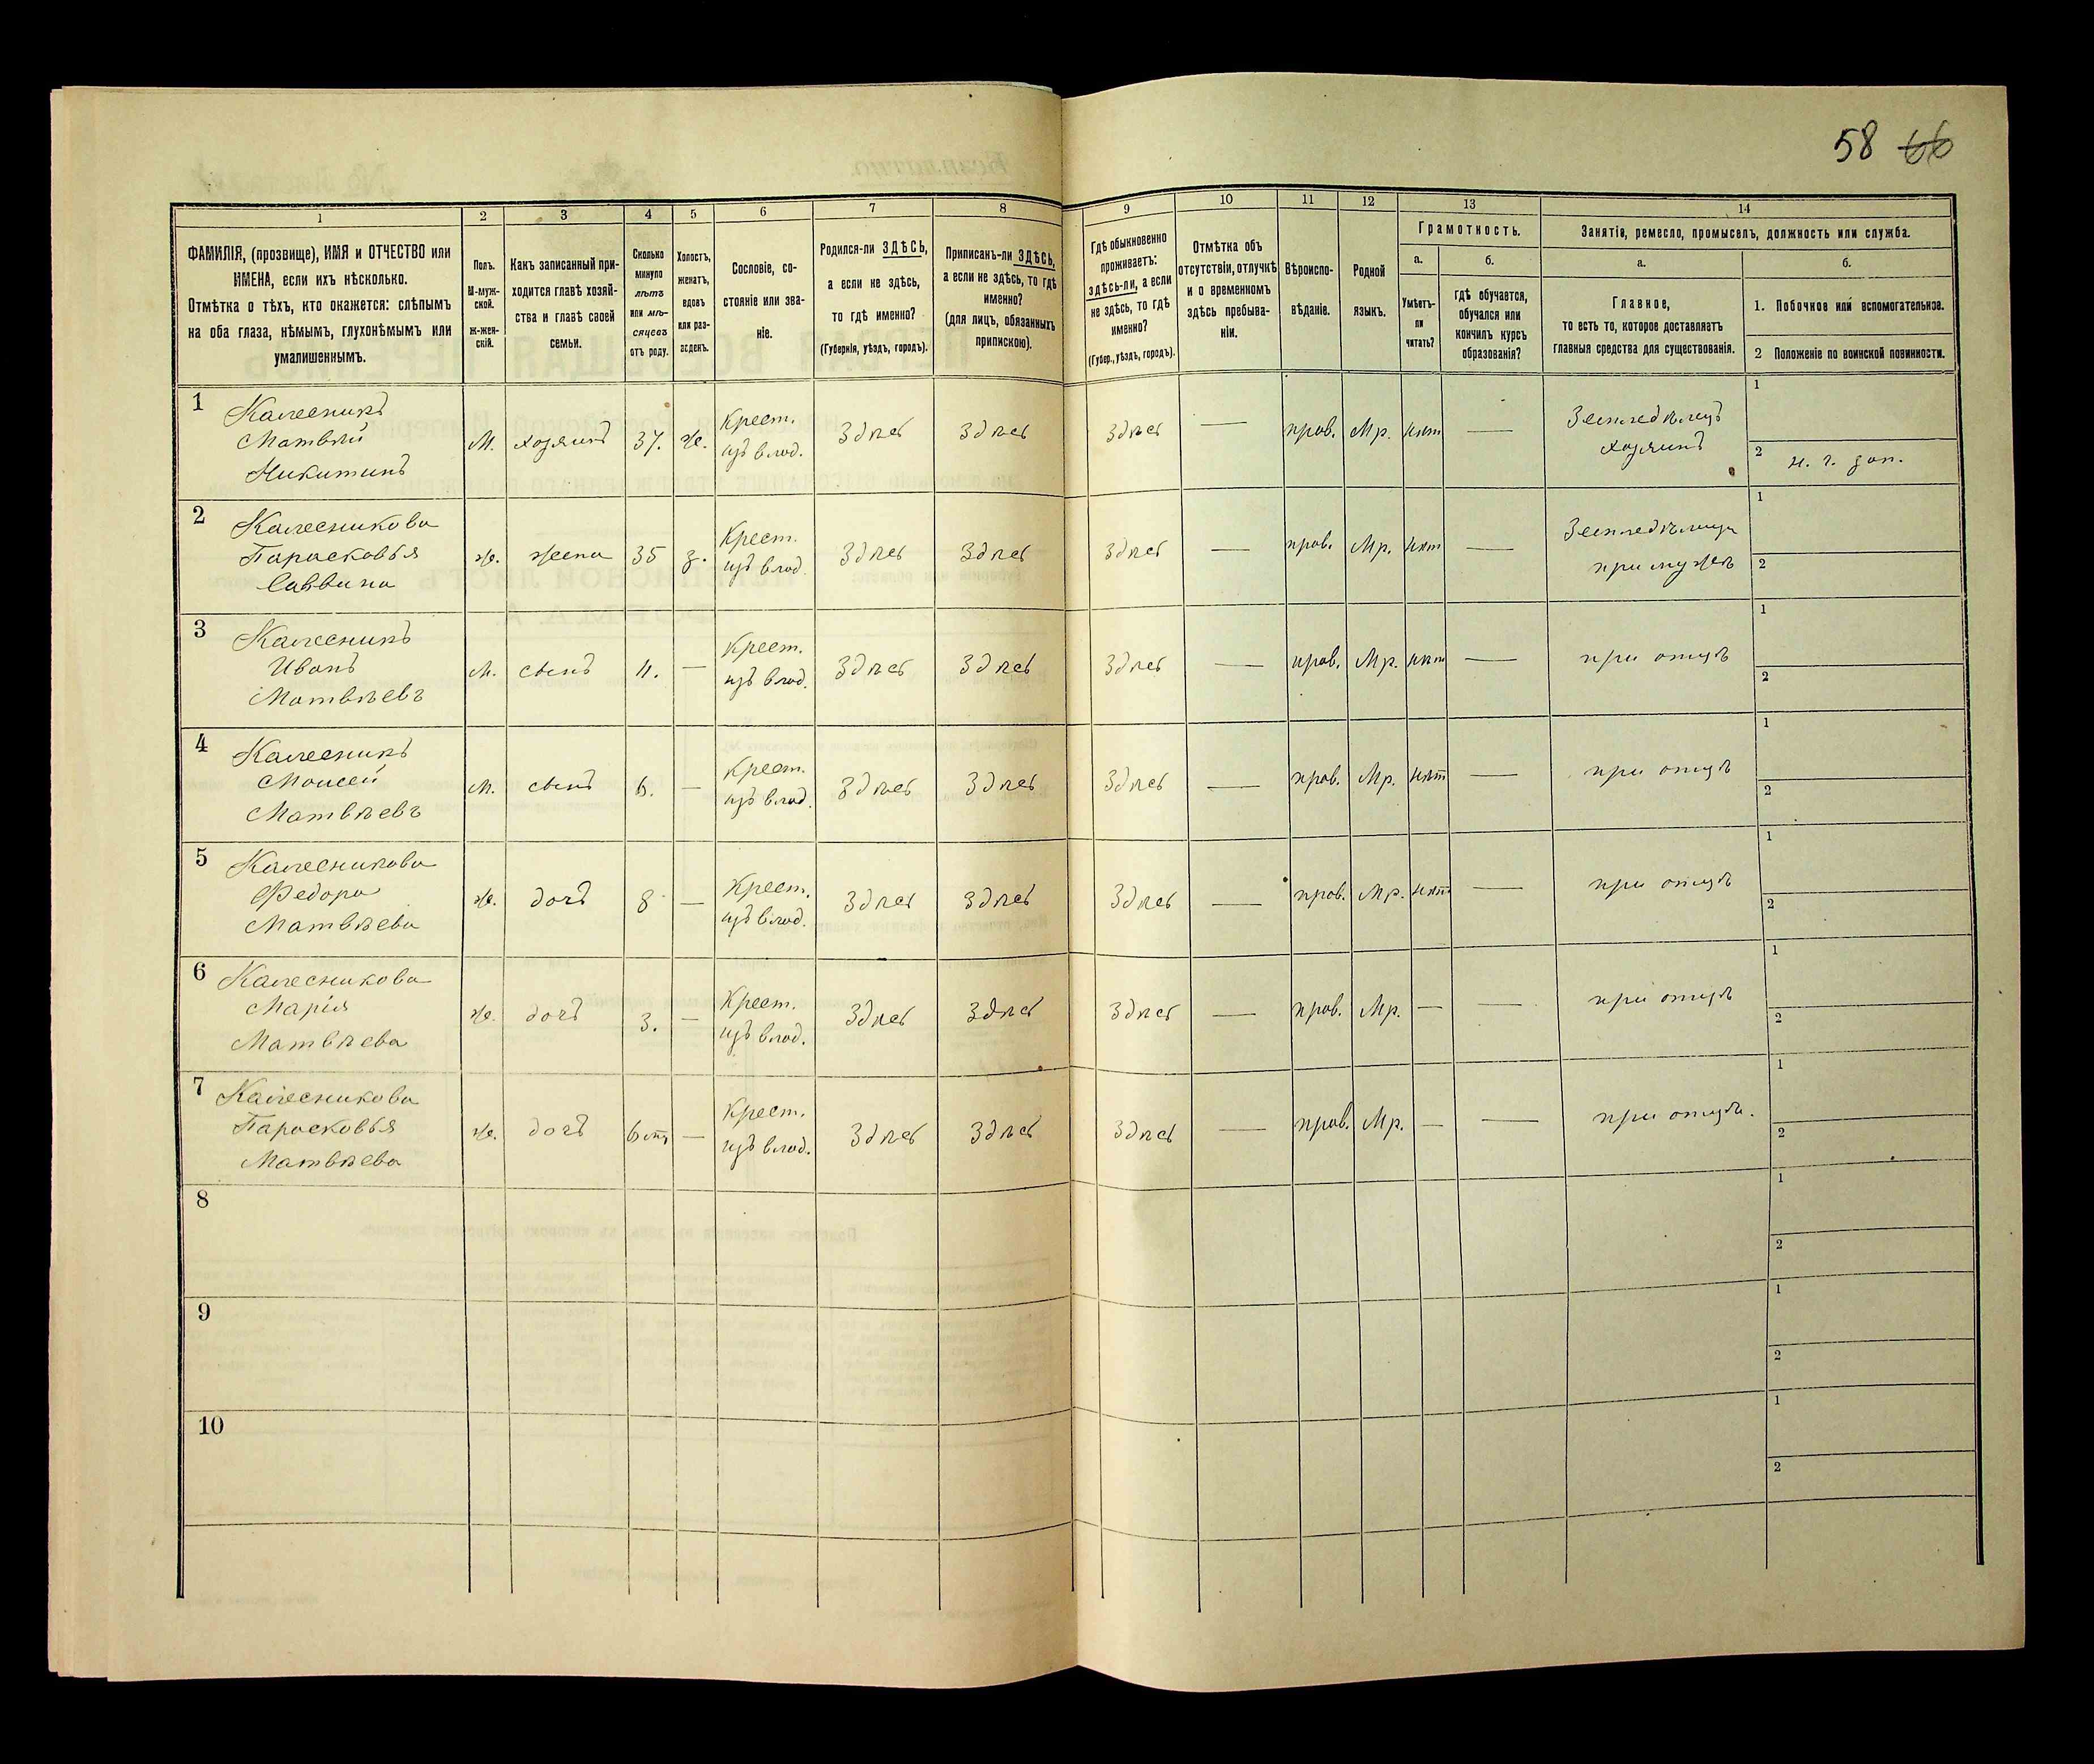 58 66
1
2
3
4
5
6
7
8
9
10
11
12
13
14
ФАМИЛІЯ, (прозвище), ИМЯ и ОТЧЕСТВО или
ИМЕНА, если ихъ нѣсколько.
Отмѣтка о тѣхъ, кто окажется: слѣпымъ
на оба глаза, нѣмымъ, глухонѣмымъ или
умалишеннымъ.
Полъ.
М-муж-
ской.
Ж-жен-
скій.
Какъ записанный при-
ходится главѣ хозяй-
ства и главѣ своей
семьи.
Сколько
минуло
лѣтъ
или мѣ-
сяцевъ
отъ роду.
Холостъ,
женатъ,
вдовъ
или раз-
веденъ.
Сословіе, со-
стояніе или зва-
ніе.
Родился-ли ЗДѢСЬ,
а если не здѣсь,
то гдѣ именно?
(Губернія, уѣздъ, городъ).
Приписанъ-ли ЗДѢСЬ,
а если не здѣсь, то гдѣ
именно?
(для лицъ, обязанныхъ
припискою).
Гдѣ обыкновенно
проживаетъ:
здѣсь-ли, а если
не здѣсь, то гдѣ
именно?
(Губер., уѣздъ, городъ).
Отмѣтка объ
отсутствіи, отлучкѣ
и о временномъ
здѣсь пребыва-
ніи.
Вѣроиспо-
вѣданіе.
Родной
языкъ.
Грамотность.
а.
Умѣетъ-
ли
читать?
б.
гдѣ обучается,
обучался или
кончилъ курсъ
образованія?
Занятіе, ремесло, промыселъ, должность или служба.
а.
Главное,
то есть то, которое доставляетъ
главныя средства для существованія.
б.
1. Побочное или вспомогательное.
2 Положеніе по воинской повинности.
1 Калесникъ
Матвѣй
Никитинъ
М. хозяинъ 37. Же. Крест.
изъ влад. Здѣсь Здѣсь Здѣсь — прав. Мр. нѣт — Земледѣлецъ
хозяинъ
1
2 н. г. зап.
2 Калесникова
Парасковья
Саввина
Же. жена 35 з. Крест.
изъ влад. Здѣсь Здѣсь Здѣсь — прав. Мр. нѣт — Земледѣлица
при мужѣ
1
2
3 Калесникъ
Иванъ
Матвѣевъ
М. сынъ 11. — Крест.
изъ влад. Здѣсь Здѣсь Здѣсь — прав. Мр. нѣт — при отцѣ
1
2
4 Калесникъ
Моисей
Матвѣевъ
М. сынъ 6. — Крест.
изъ влад. Здѣсь Здѣсь Здѣсь — прав. Мр. нѣт — при отцѣ
1
2
5 Калесникова
Федора
Матвѣева
Же. дочъ 8 — Крест.
изъ влад. Здѣсь Здѣсь Здѣсь — прав. Мр. нѣт — при отцѣ
1
2
6 Калесникова
Марія
Матвѣева
Же. дочъ 3. — Крест.
изъ влад. Здѣсь Здѣсь Здѣсь — прав. Мр. — — при отцѣ
1
2
7 Калесникова
Парасковья
Матвѣева
Же. дочъ — Крест.
изъ влад. Здѣсь Здѣсь Здѣсь — прав. Мр. — — при отцѣ.
1
2
8
1
2
9
1
2
10
1
2